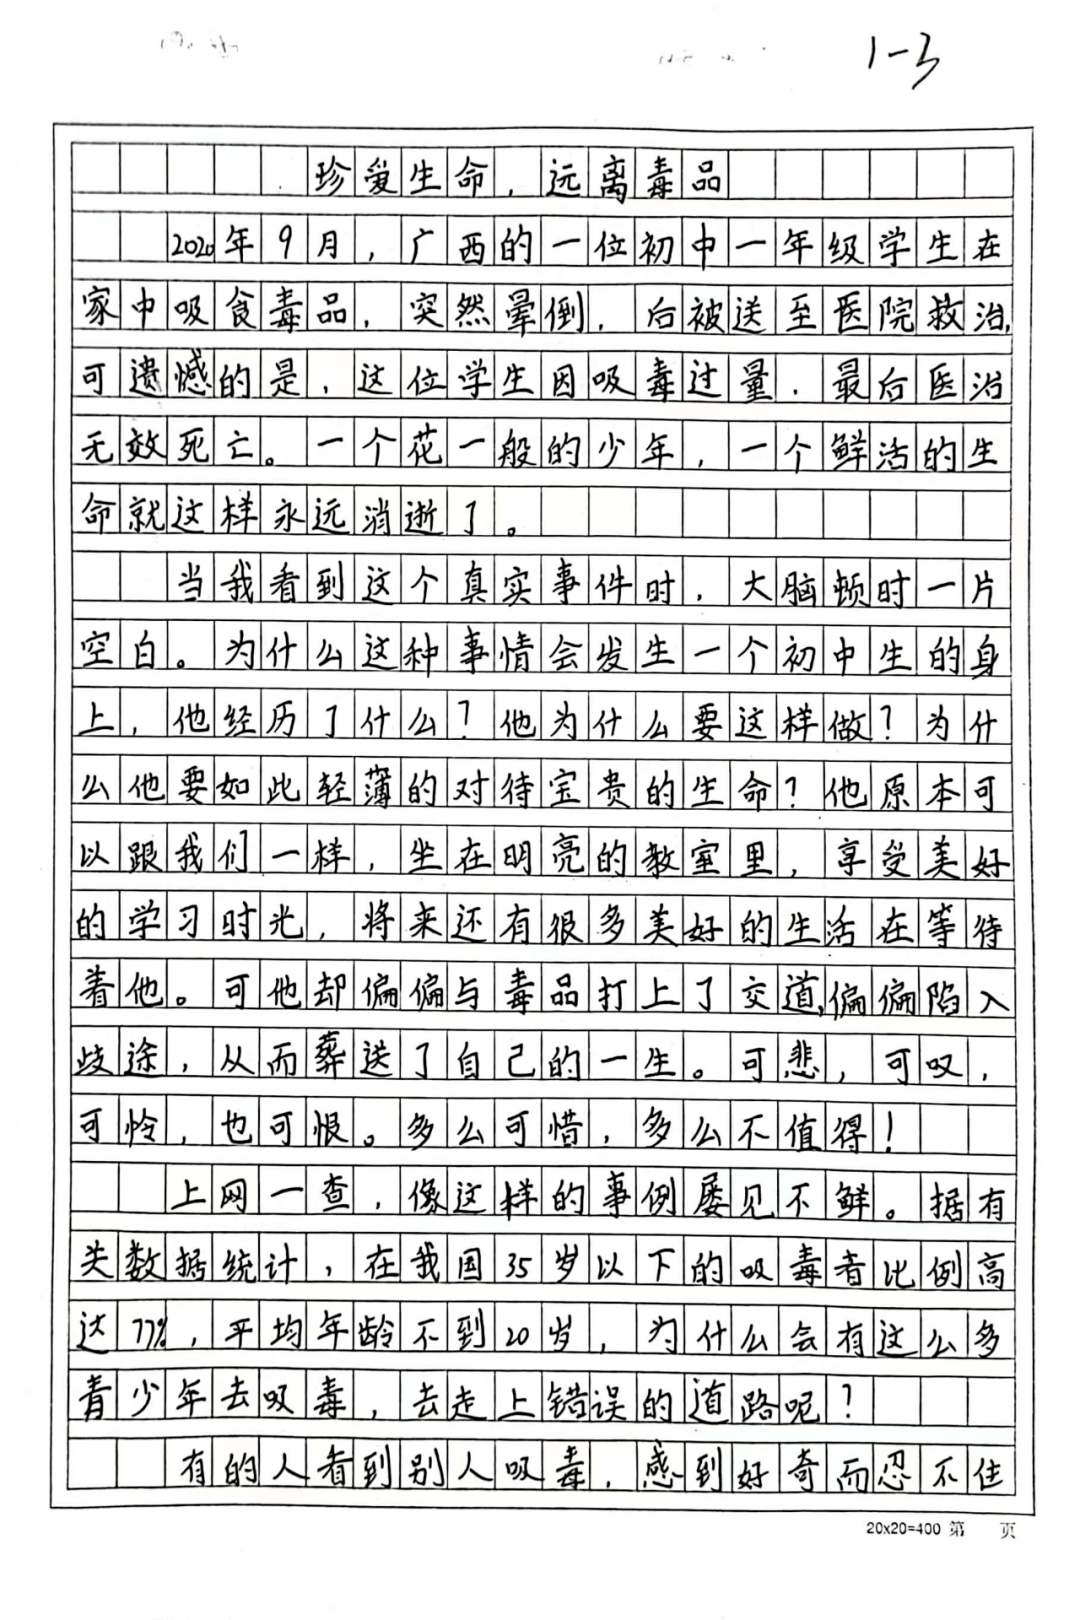 1-3
珍爱生命，远离毒品
2020年9月，广西的一位初中一年级学生在
家中吸食毒品，突然晕倒，后被送至医院救治，
可遗憾的是，这位学生因吸毒过量，最后医治
无效死亡。一个花一般的少年，一个鲜活的生
命就这样永远消逝了。
当我看到这个真实事件时，大脑顿时一片
空白。为什么这种事情会发生一个初中生的身
上，他经历了什么？他为什么要这样做？为什
么他要如此轻薄的对待宝贵的生命？他原本可
以跟我们一样，坐在明亮的教室里，享受美好
的学习时光，将来还有很多美好的生活在等待
着他。可他却偏偏与毒品打上了交道，偏偏陷入
歧途，从而葬送了自己的一生。可悲，可叹，
可怜，也可恨。多么可惜，多么不值得！
上网一查，像这样的事例屡见不鲜。据有
关数据统计，在我国35岁以下的吸毒者比例高
达77%，平均年龄不到20岁，为什么会有这么多
青少年去吸毒，去走上错误的道路呢？
有的人看到别人吸毒，感到好奇而忍不住
20x20=400 第 页